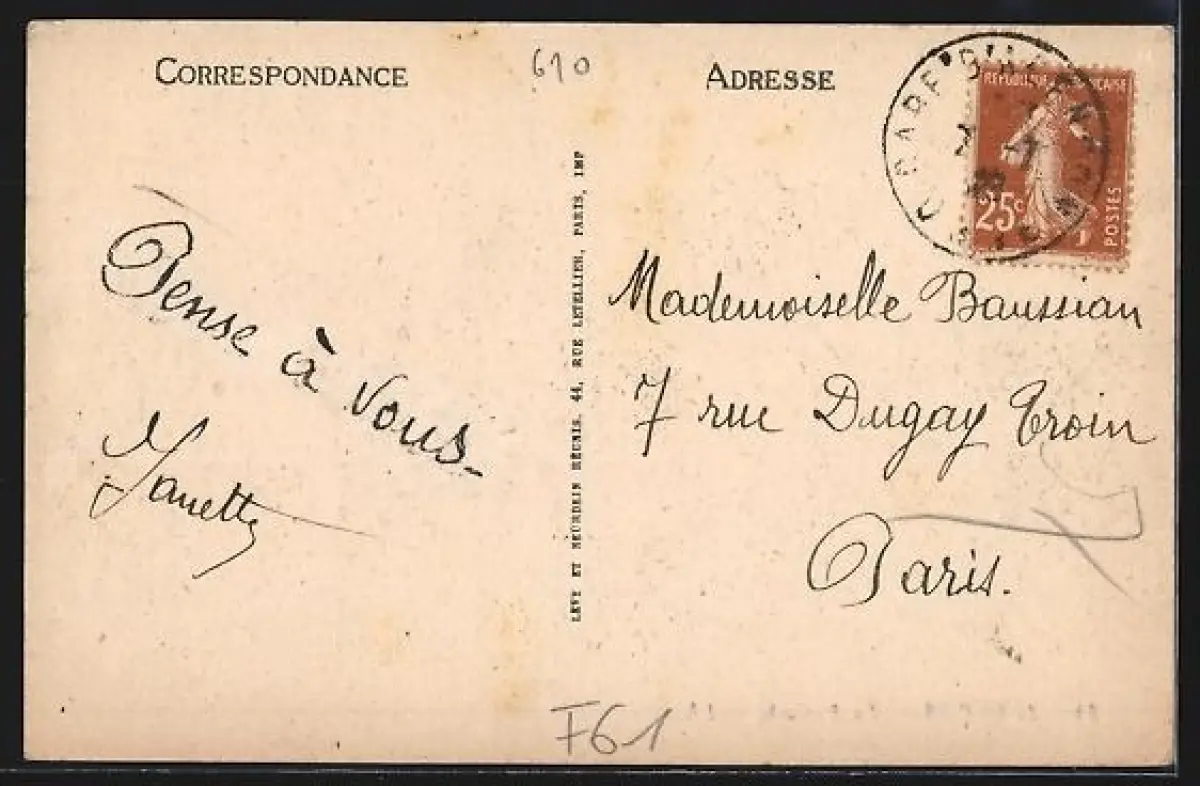 CORRESPONDANCE
610
ADRESSE
RÉPUBLIQUE FRANÇAISE
25c
POSTES
LEVY ET NEURDEIN RÉUNIS, 44, RUE LETELLIER, PARIS, IMP
Pense à vous-
Mademoiselle Baussian
7 rue Dugay Troin
Paris.
F61